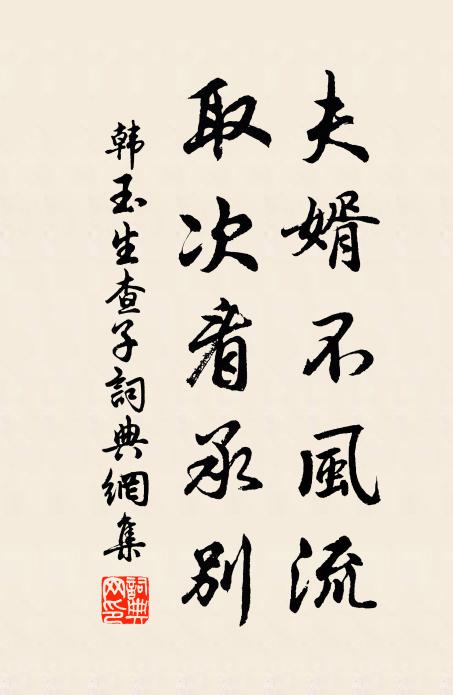 夫婿不風流
取次看承別
韩玉生查子詞典網集
詞典网印